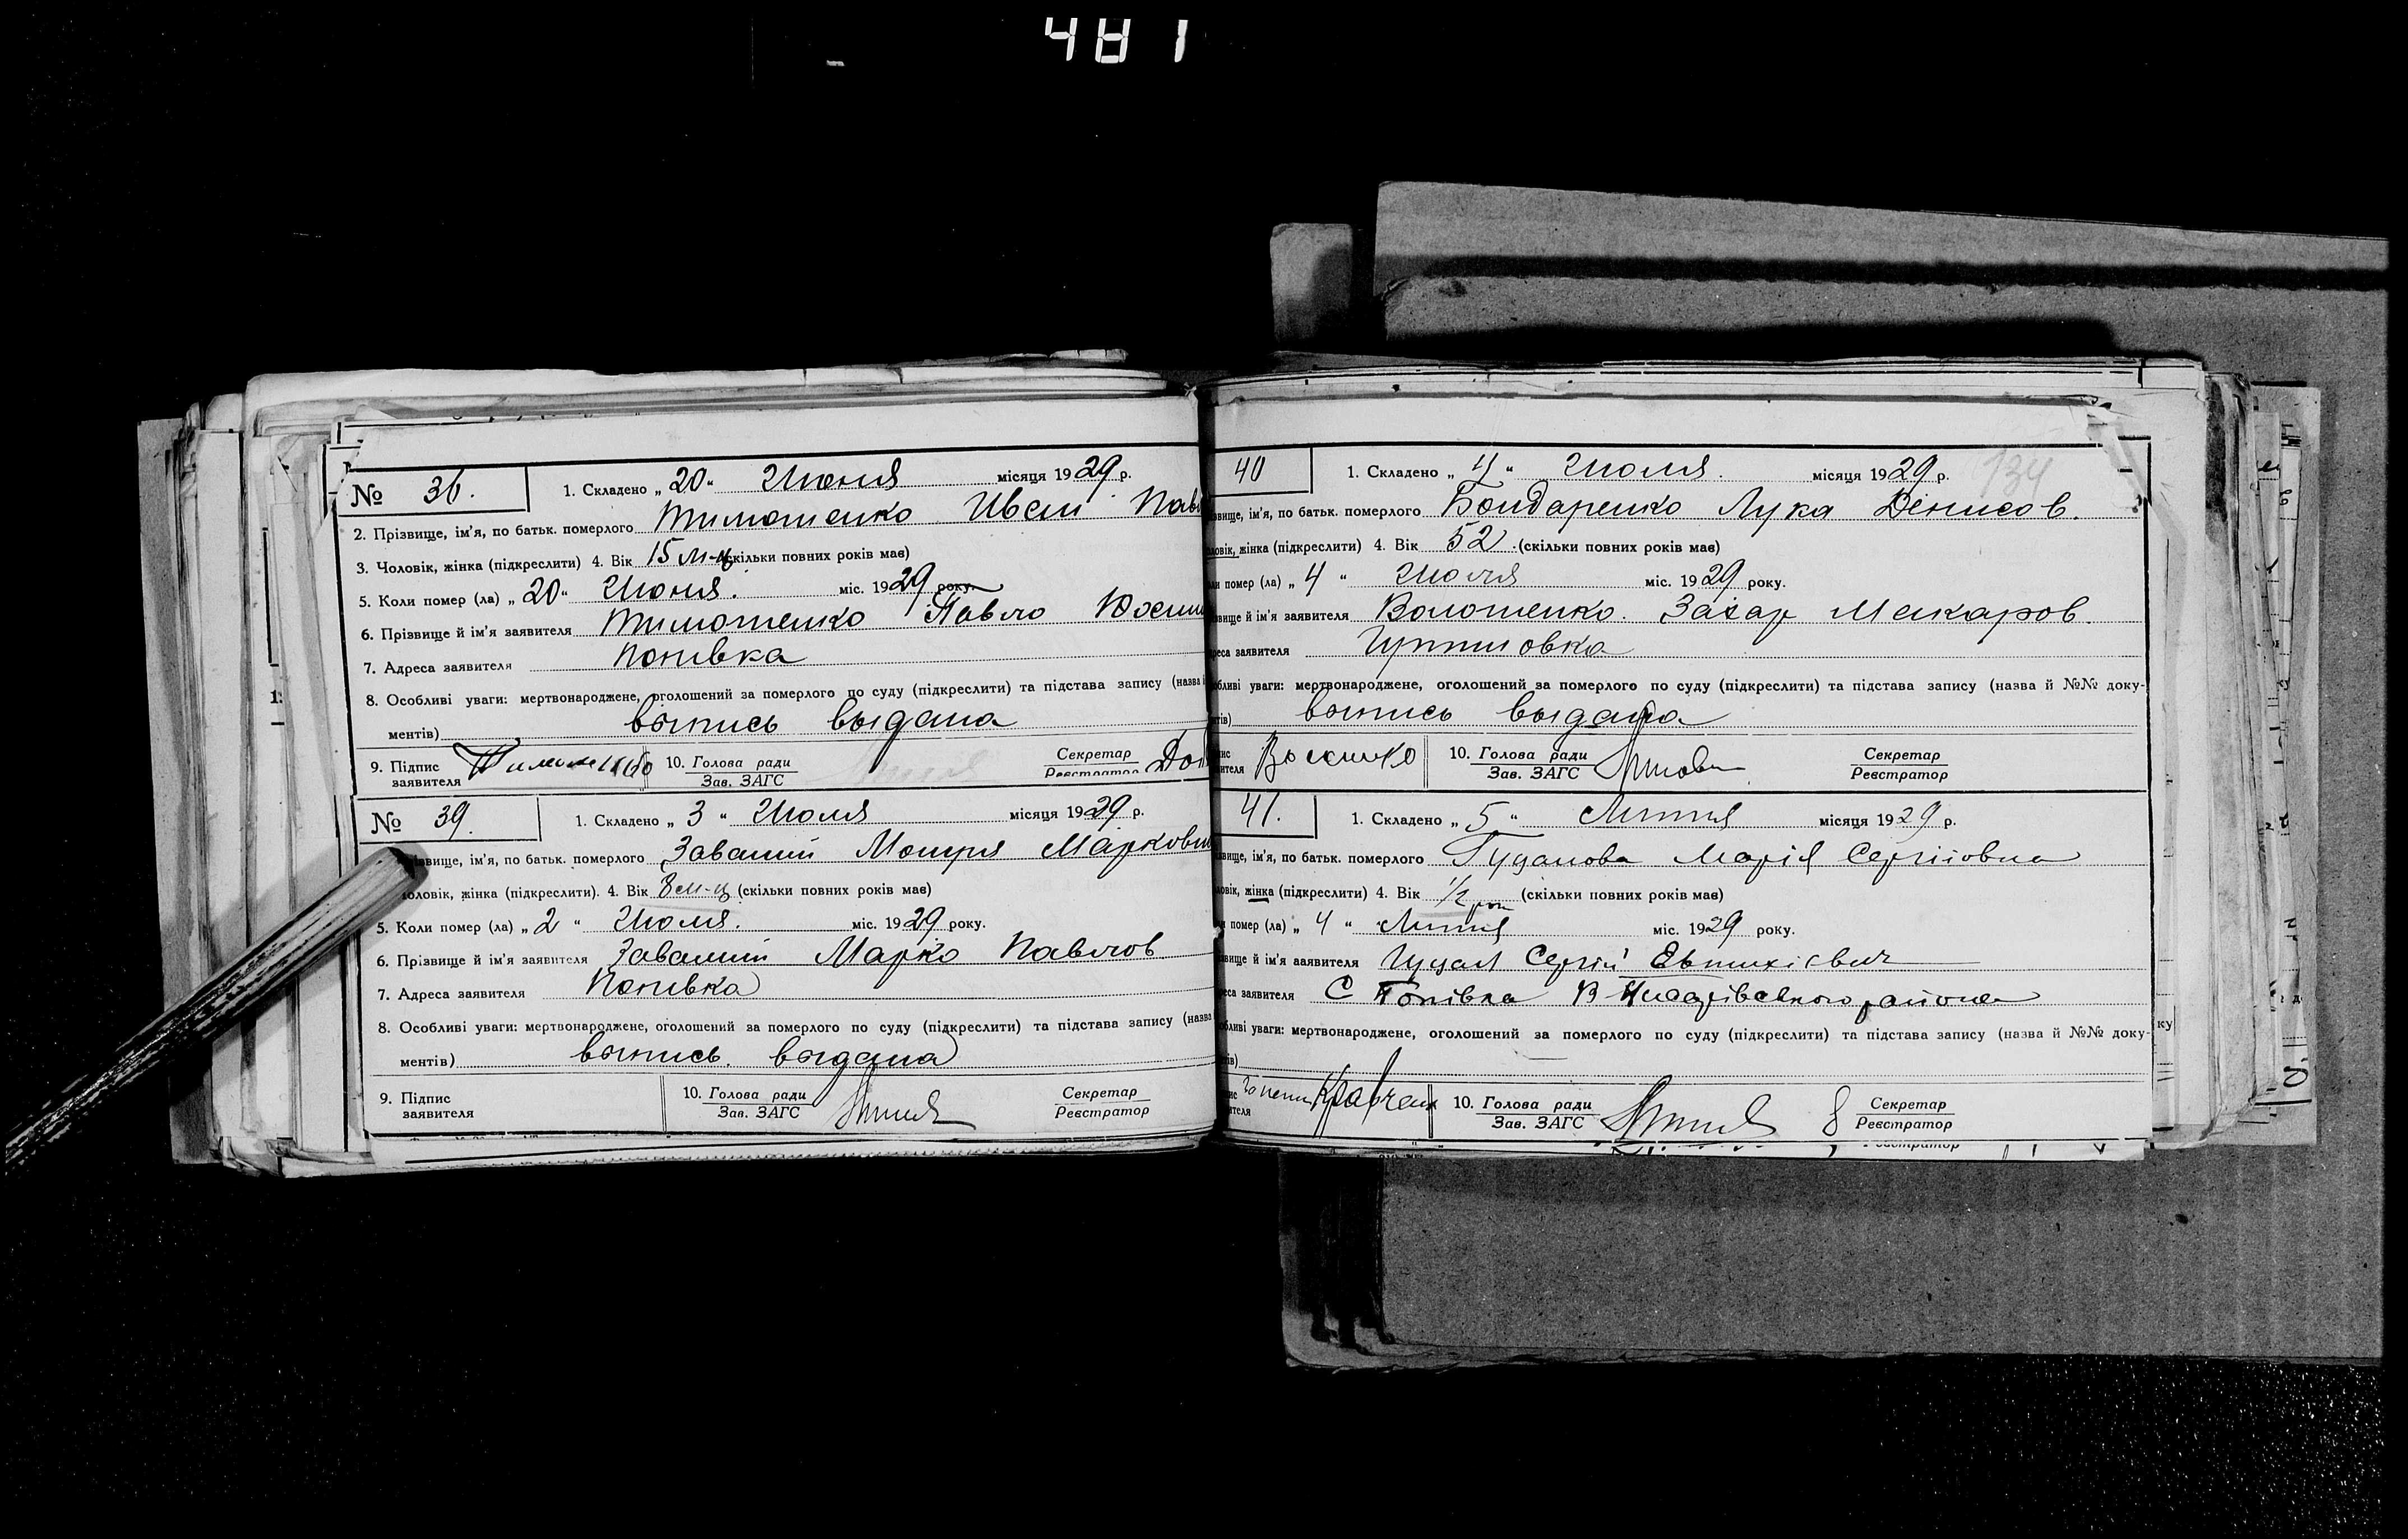 481
№ 36. 1. Складено „ 20 “ Июня місяця 1929 р.
2. Прізвище, ім'я, по батьк. померлого Тимошенко Иван Пав
3. Чоловік, жінка (підкреслити) 4. Вік 15 м-ц скільки повних років має)
5. Коли помер (ла) „ 20 “ Июня. міс. 1929 року.
6. Прізвище й ім'я заявителя Тимошенко Павло
7. Адреса заявителя Попивка
8. Особливі уваги: мертвонароджене, оголошений за померлого по суду (підкреслити) та підстава запису (назва
ментів) выпись выдана
9. Підпис заявителя Тимошенко 10. Голова ради Зав. ЗАГС Секретар Реєстратор
№ 39. 1. Складено „ 3 “ Июля місяця 1929 р.
вище, ім'я, по батьк. померлого Завалий Мотря Марковн
оловік, жінка (підкреслити). 4. Вік 8 м-ц (скільки повних років має)
5. Коли помер (ла) „ 2 “ Июля. міс. 1929 року.
6. Прізвище й ім'я заявителя Завалий Марко Павлов
7. Адреса заявителя Попивка
8. Особливі уваги: мертвонароджене, оголошений за померлого по суду (підкреслити) та підстава запису (назва
ментів) выпись. выдана
9. Підпис заявителя 10. Голова ради Зав. ЗАГС Секретар Реєстратор
40 1. Складено „ 4 “ Июля. місяця 1929 р. 134
звище, ім'я, по батьк. померлого Бондаренко Лука Денисов.
ловік, жінка (підкреслити) 4. Вік 52 (скільки повних років має)
ли помер (ла) „ 4 “ Июля міс. 1929 року.
звище й ім'я заявителя Волошенко. Захар Макаров.
реса заявителя
обливі уваги: мертвонароджене, оголошений за померлого по суду (підкреслити) та підстава запису (назва й №№ доку-
нтів) выпись выдана
пис вителя 10. Голова ради Зав. ЗАГС Секретар Реєстратор
41. 1. Складено „ 5 “ Липня місяця 1929 р.
звище, ім'я, по батьк. померлого Гуцалова Марія Сергіївна
ловік, жінка (підкреслити) 4. Вік 1/2 рок (скільки повних років має)
и помер (ла) „ 4 “ Липня міс. 1929 року.
звище й ім'я заявителя Гуцал Сергій Евтихієвич
реса заявителя С Попівка района
обливі уваги: мертвонароджене, оголошений за померлого по суду (підкреслити) та підстава запису (назва й №№ доку-
тів)
пис ителя Кравченк 10. Голова ради Зав. ЗАГС Секретар Реєстратор